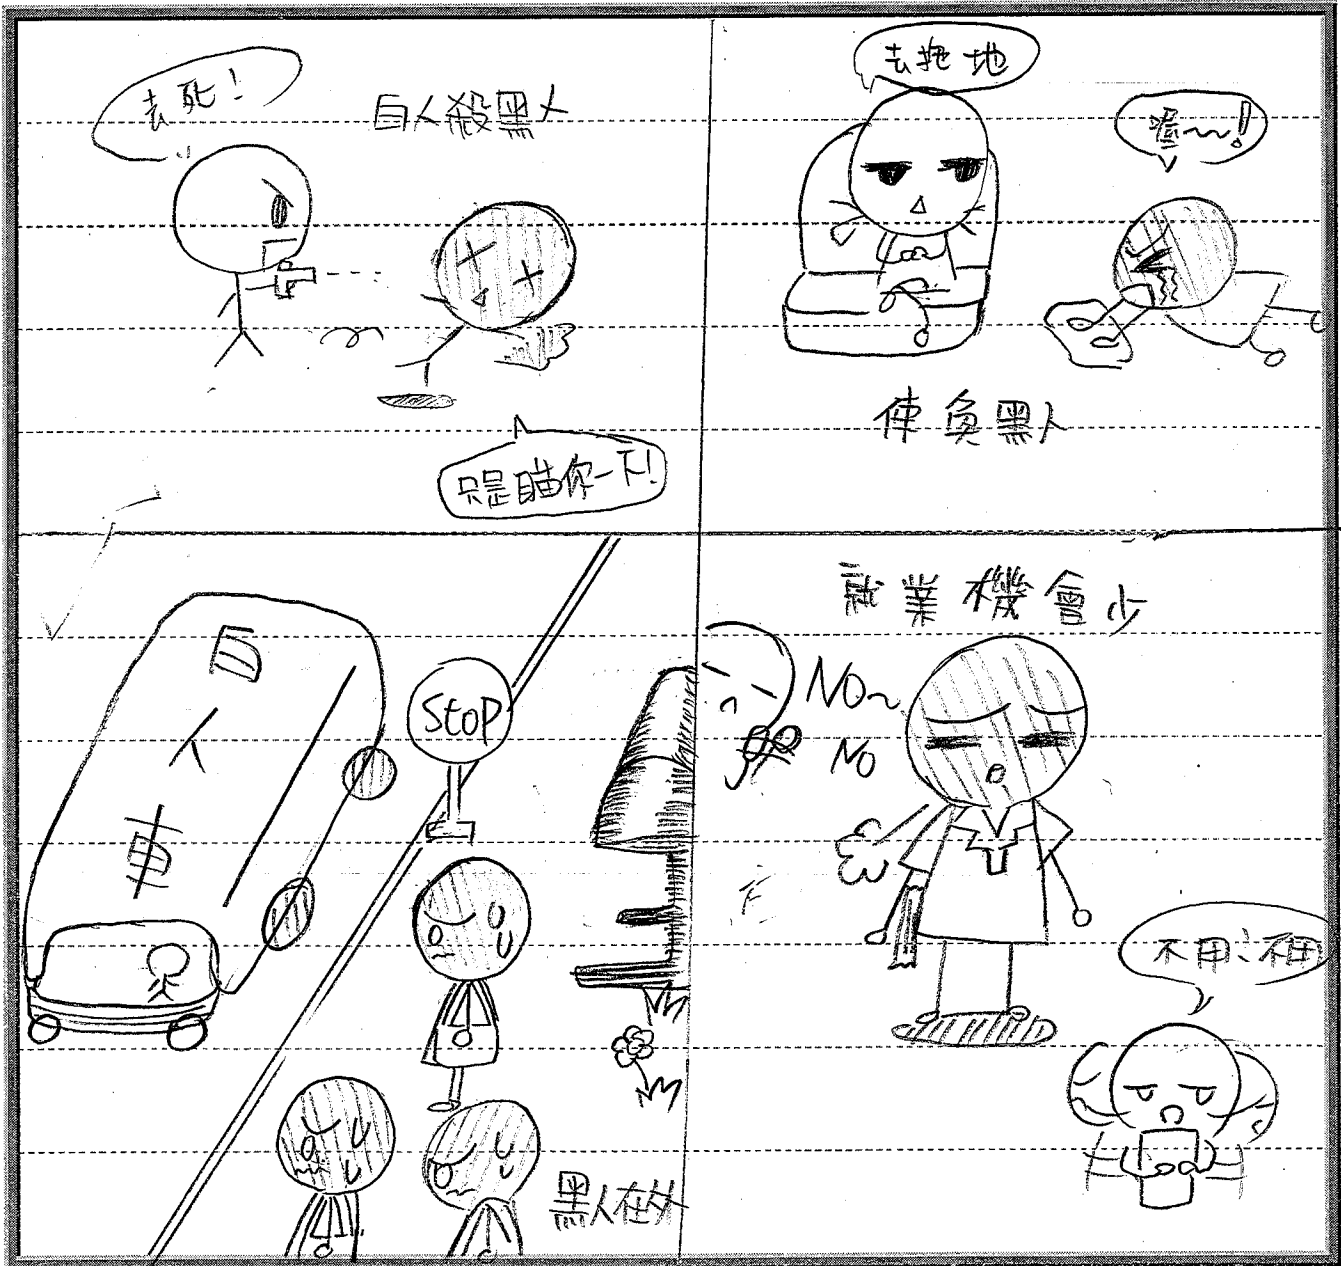 去死！
白人殺黑人
只是瞄你一下！
去拖地
喔~~！
使負黑人
白
人
車
Stop
黑人在外
就業機會少
No~
No
不用、不用